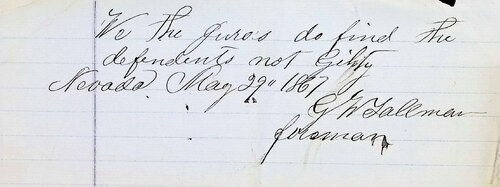 We the Juros do find the
defendents not Gilty
Nevada May 29" 1867
G W Tallman
foreman